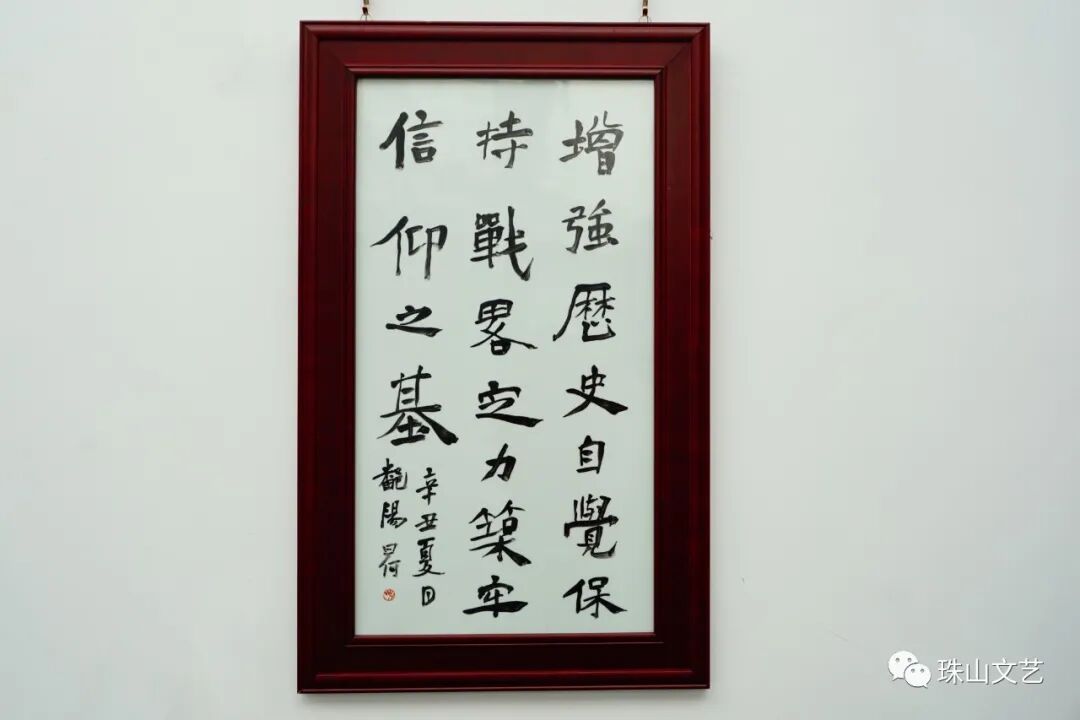 增強歷史自覺保
持戰畧定力築牢
信仰之基
辛丑夏日
鄱陽
珠山文艺